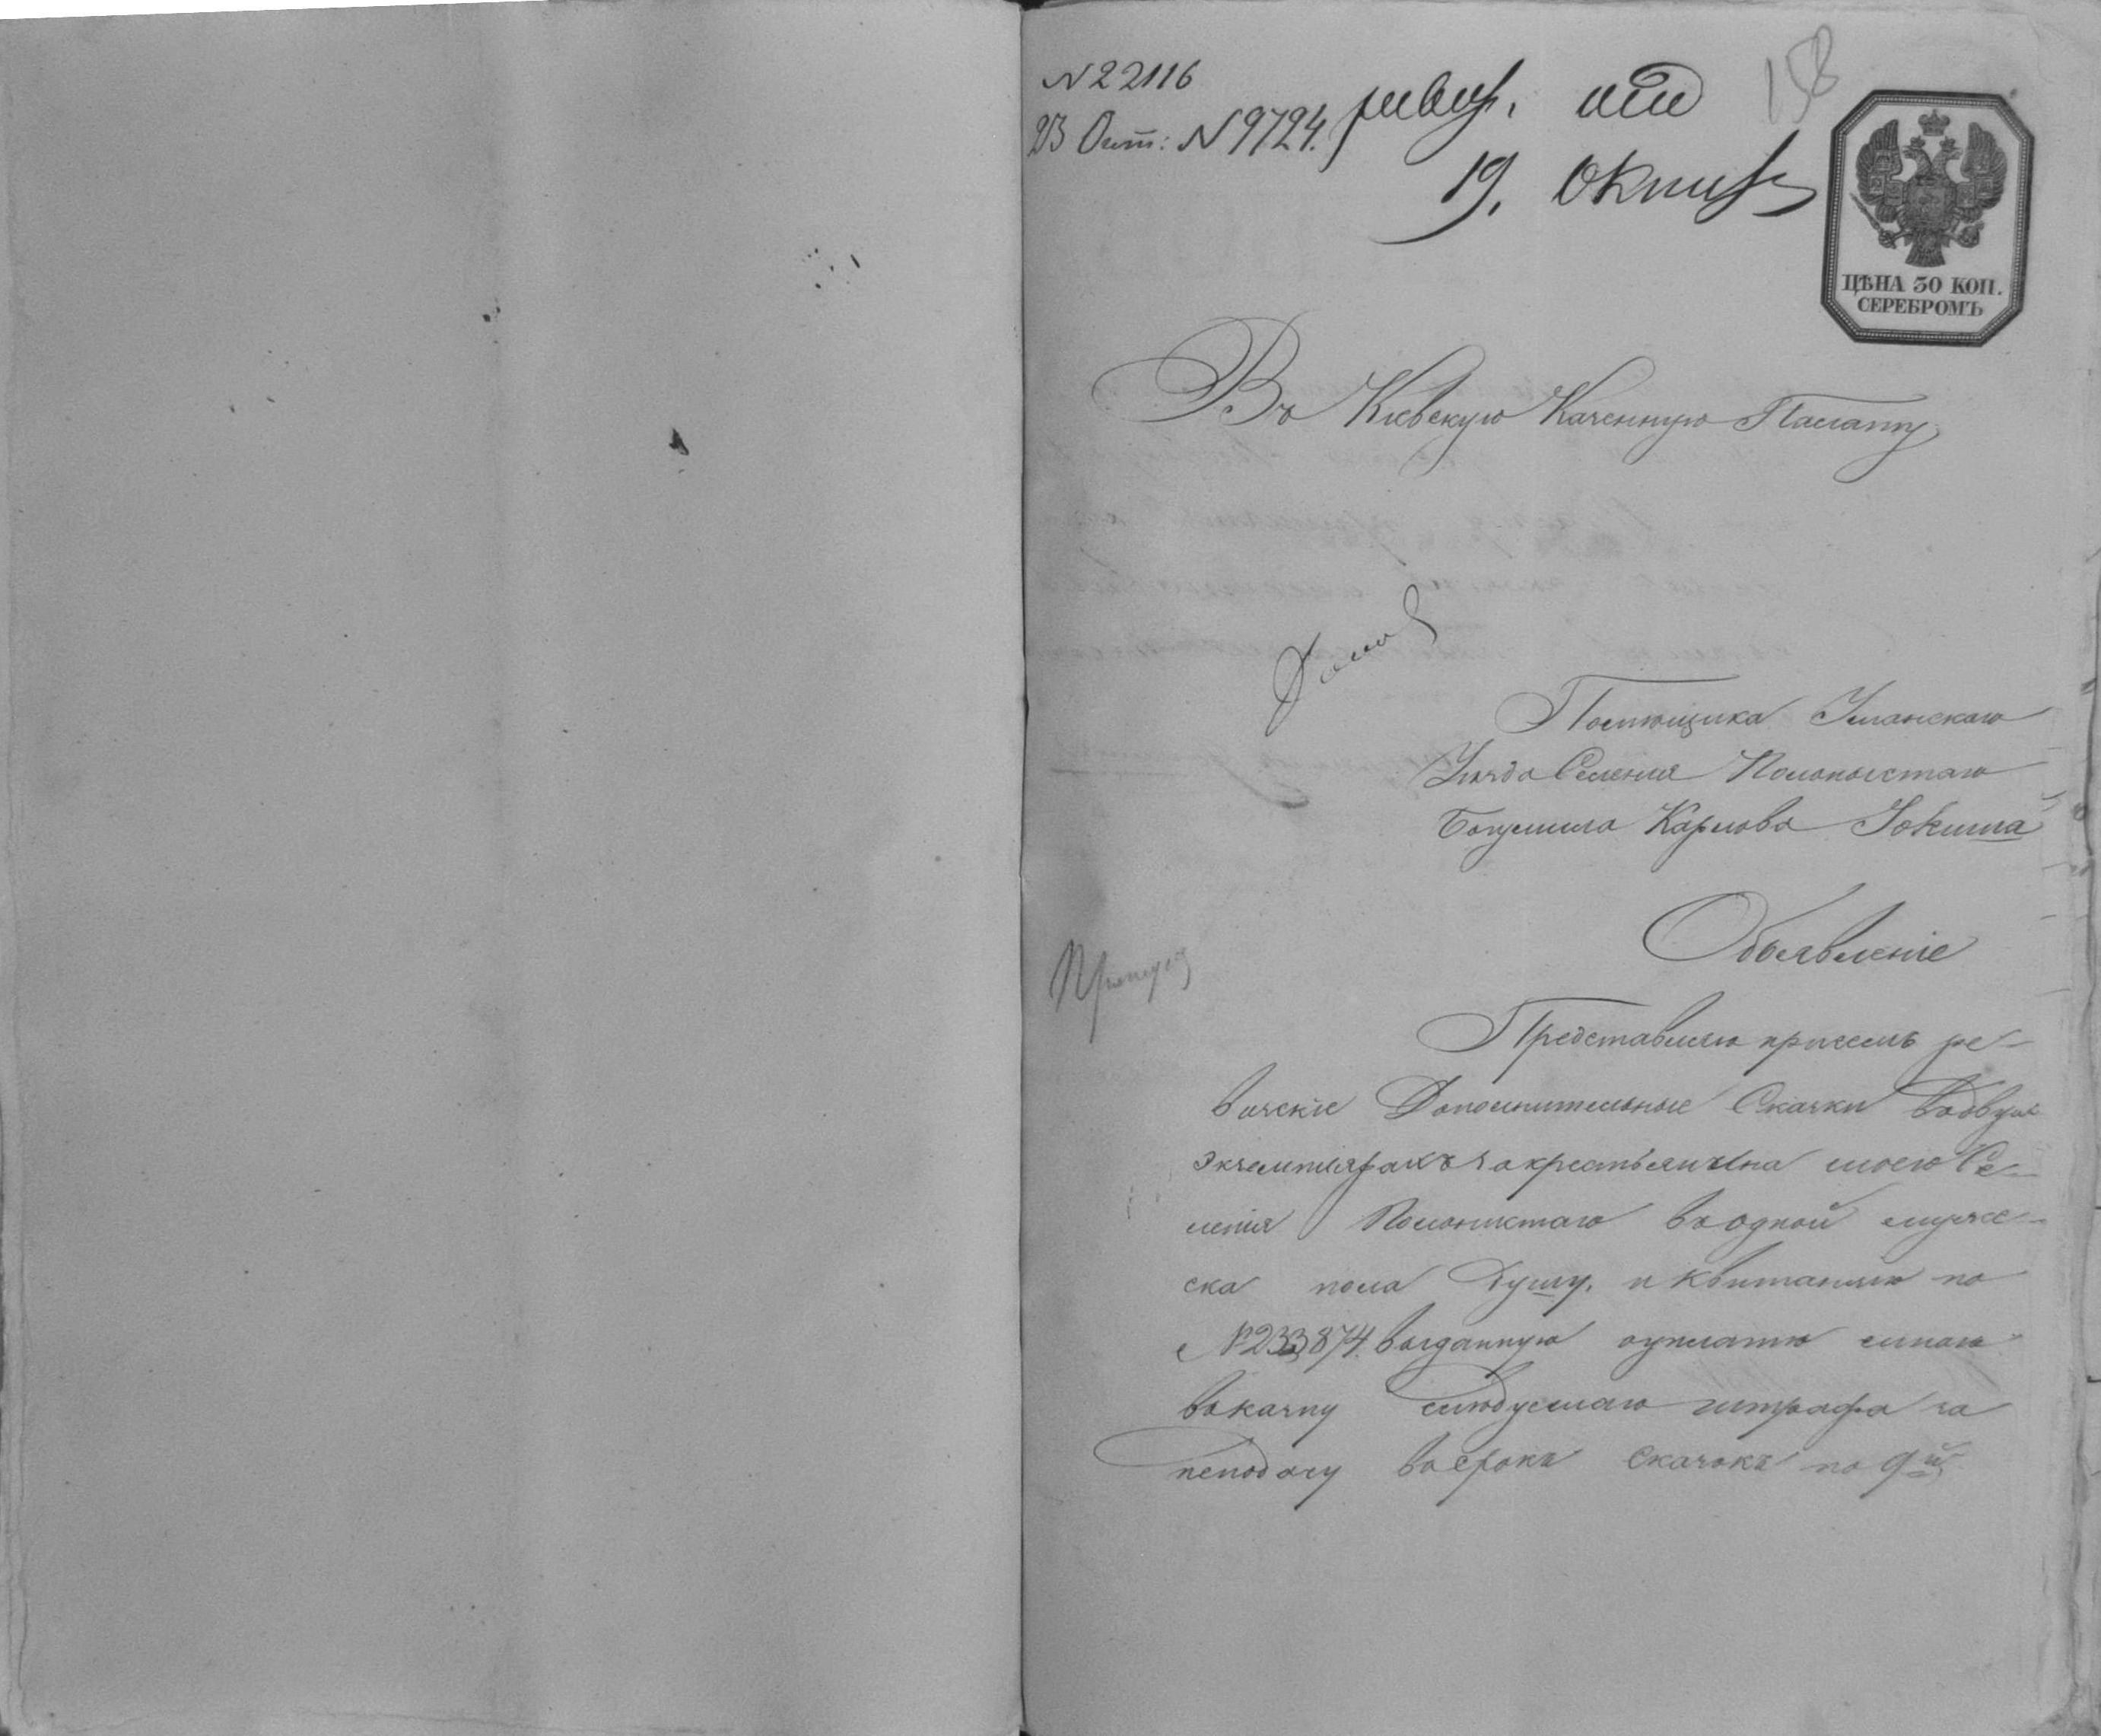 N 22116
158
23 Окт: N 9724.
ревиз. отд
19. Октяб
ЦѢНА 30 КОП.
СЕРЕБРОМЪ
Въ Кіевскую Казенную Палату
Помѣщика Уманскаго
Уѣзда Селенія Полонистаго
Богумила Карлова
Объявленіе
Представляю присемъ ре-
визскіе Дополнительные Сказки вдвухъ
экземплярахъ закрестьянина моего Се-
ленія Полонистаго водной мужес-
ска пола душу, и квитанцію по
N 233874. выданную оуплатѣ мною
вказну слѣдуемаго штрафа за
неподачу всрокъ сказокъ по 9й